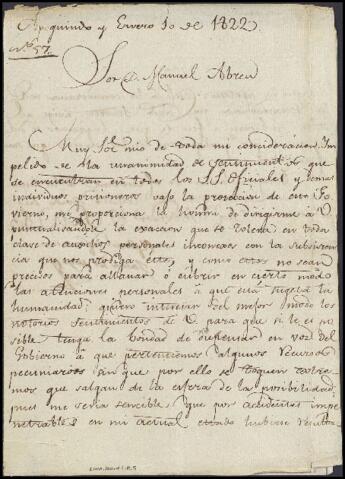 y Enero 10 de 1822
Nº 57.
Sor. D. Manuel Abreu
Muy Sor mio de toda mi consideracion. Im
pelido de la unanimidad de sentimientos que
se encuentran en todos los S.S. Oficiales y demas
individuos prisioneros vajo la proteccion de este Go
vierno, me proporciona la honra de dirigirme á V
puntualisandole la exacion que se tolera en toda
clase de auxilios personales inconexos con la subsisten
cia que nos prodiga este, y como estos no sean
precisos para allanar ó cubrir en cierto modo
las atenciones personales á que está sugeta la
humanidad; quiero interesar del mejor modo los
notorios sentimientos de V. para que si le es po
sible tenga la bondad de en voz del
Govierno á que pertenecemos algunos recursos
pecuniarios sin que por ello se toquen extre
mos que salgan de la esfera de la posibilidad;
pues me seria sensible que por accidentes impe
netrables en mi actual estado hubiese